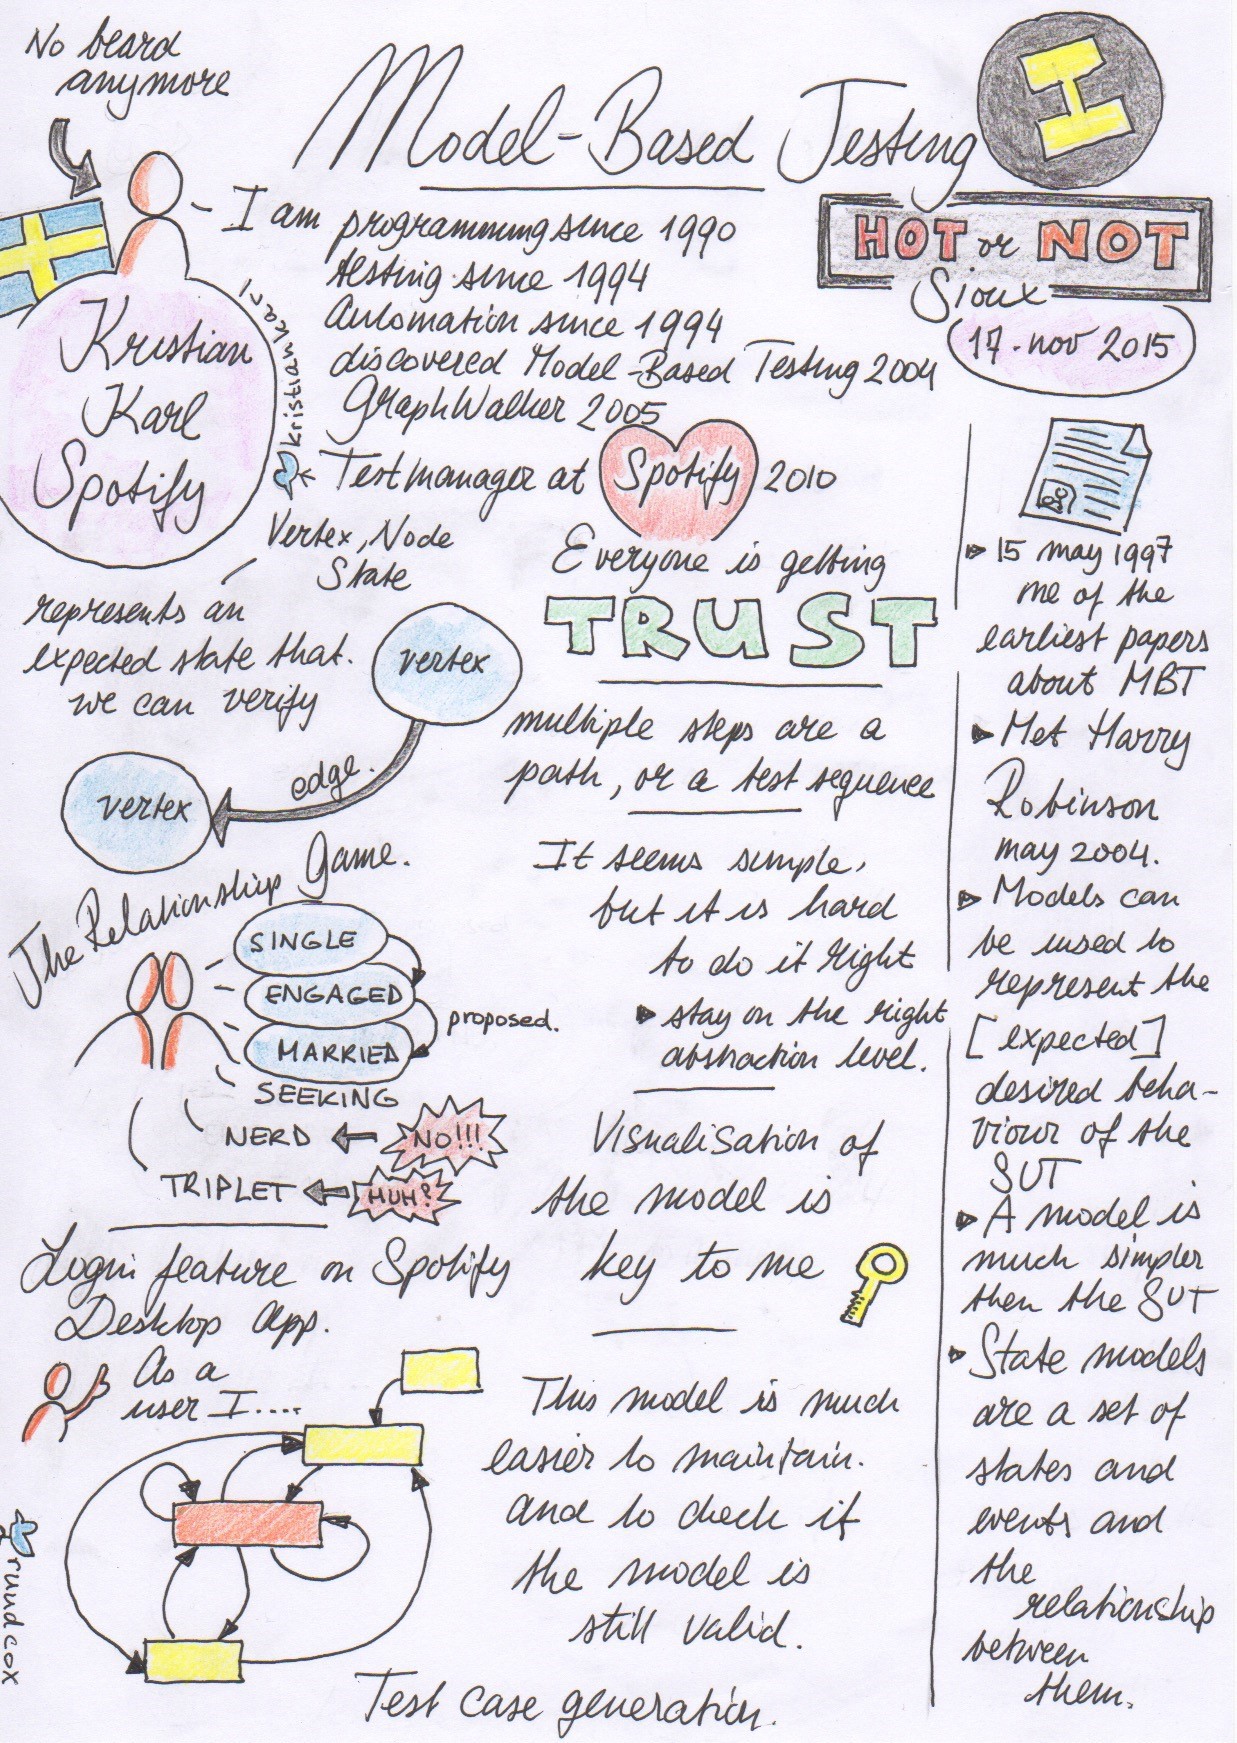 No beard
anymore
Model-Based Testing
HOT or NOT
Sioux
17. nov 2015
Kristian
Karl
Spotify
kristiankarl
- I am programming since 1990
testing since 1994
Automation since 1994
discovered Model-Based Testing 2004
GraphWalker 2005
Testmanager at Spotify 2010
Vertex, Node
State
represents an
expected state that.
we can verify
vertex
edge.
vertex
Everyone is getting
TRUST
multiple steps are a
path, or a test sequence
It seems simple,
but it is hard
to do it right
▶ stay on the right
abstraction level.
Visualisation of
the model is
key to me
The Relationship Game.
SINGLE
ENGAGED
MARRIED
proposed.
SEEKING
NERD ⇐ NO!!!
TRIPLET ⇐ HUH?
Login feature on Spotify
Desktop App.
As a
user I....
This model is much
easier to maintain.
and to check if
the model is
still valid.
Test case generation.
ruudcox
▶ 15 may 1997
me of the
earliest papers
about MBT
▶ Met Harry
Robinson
may 2004.
▶ Models can
be used to
represent the
[expected]
desired beha-
viour of the
SUT
▶ A model is
much simpler
then the SUT
▶ State models
are a set of
states and
events and
the
relationship
between
them.